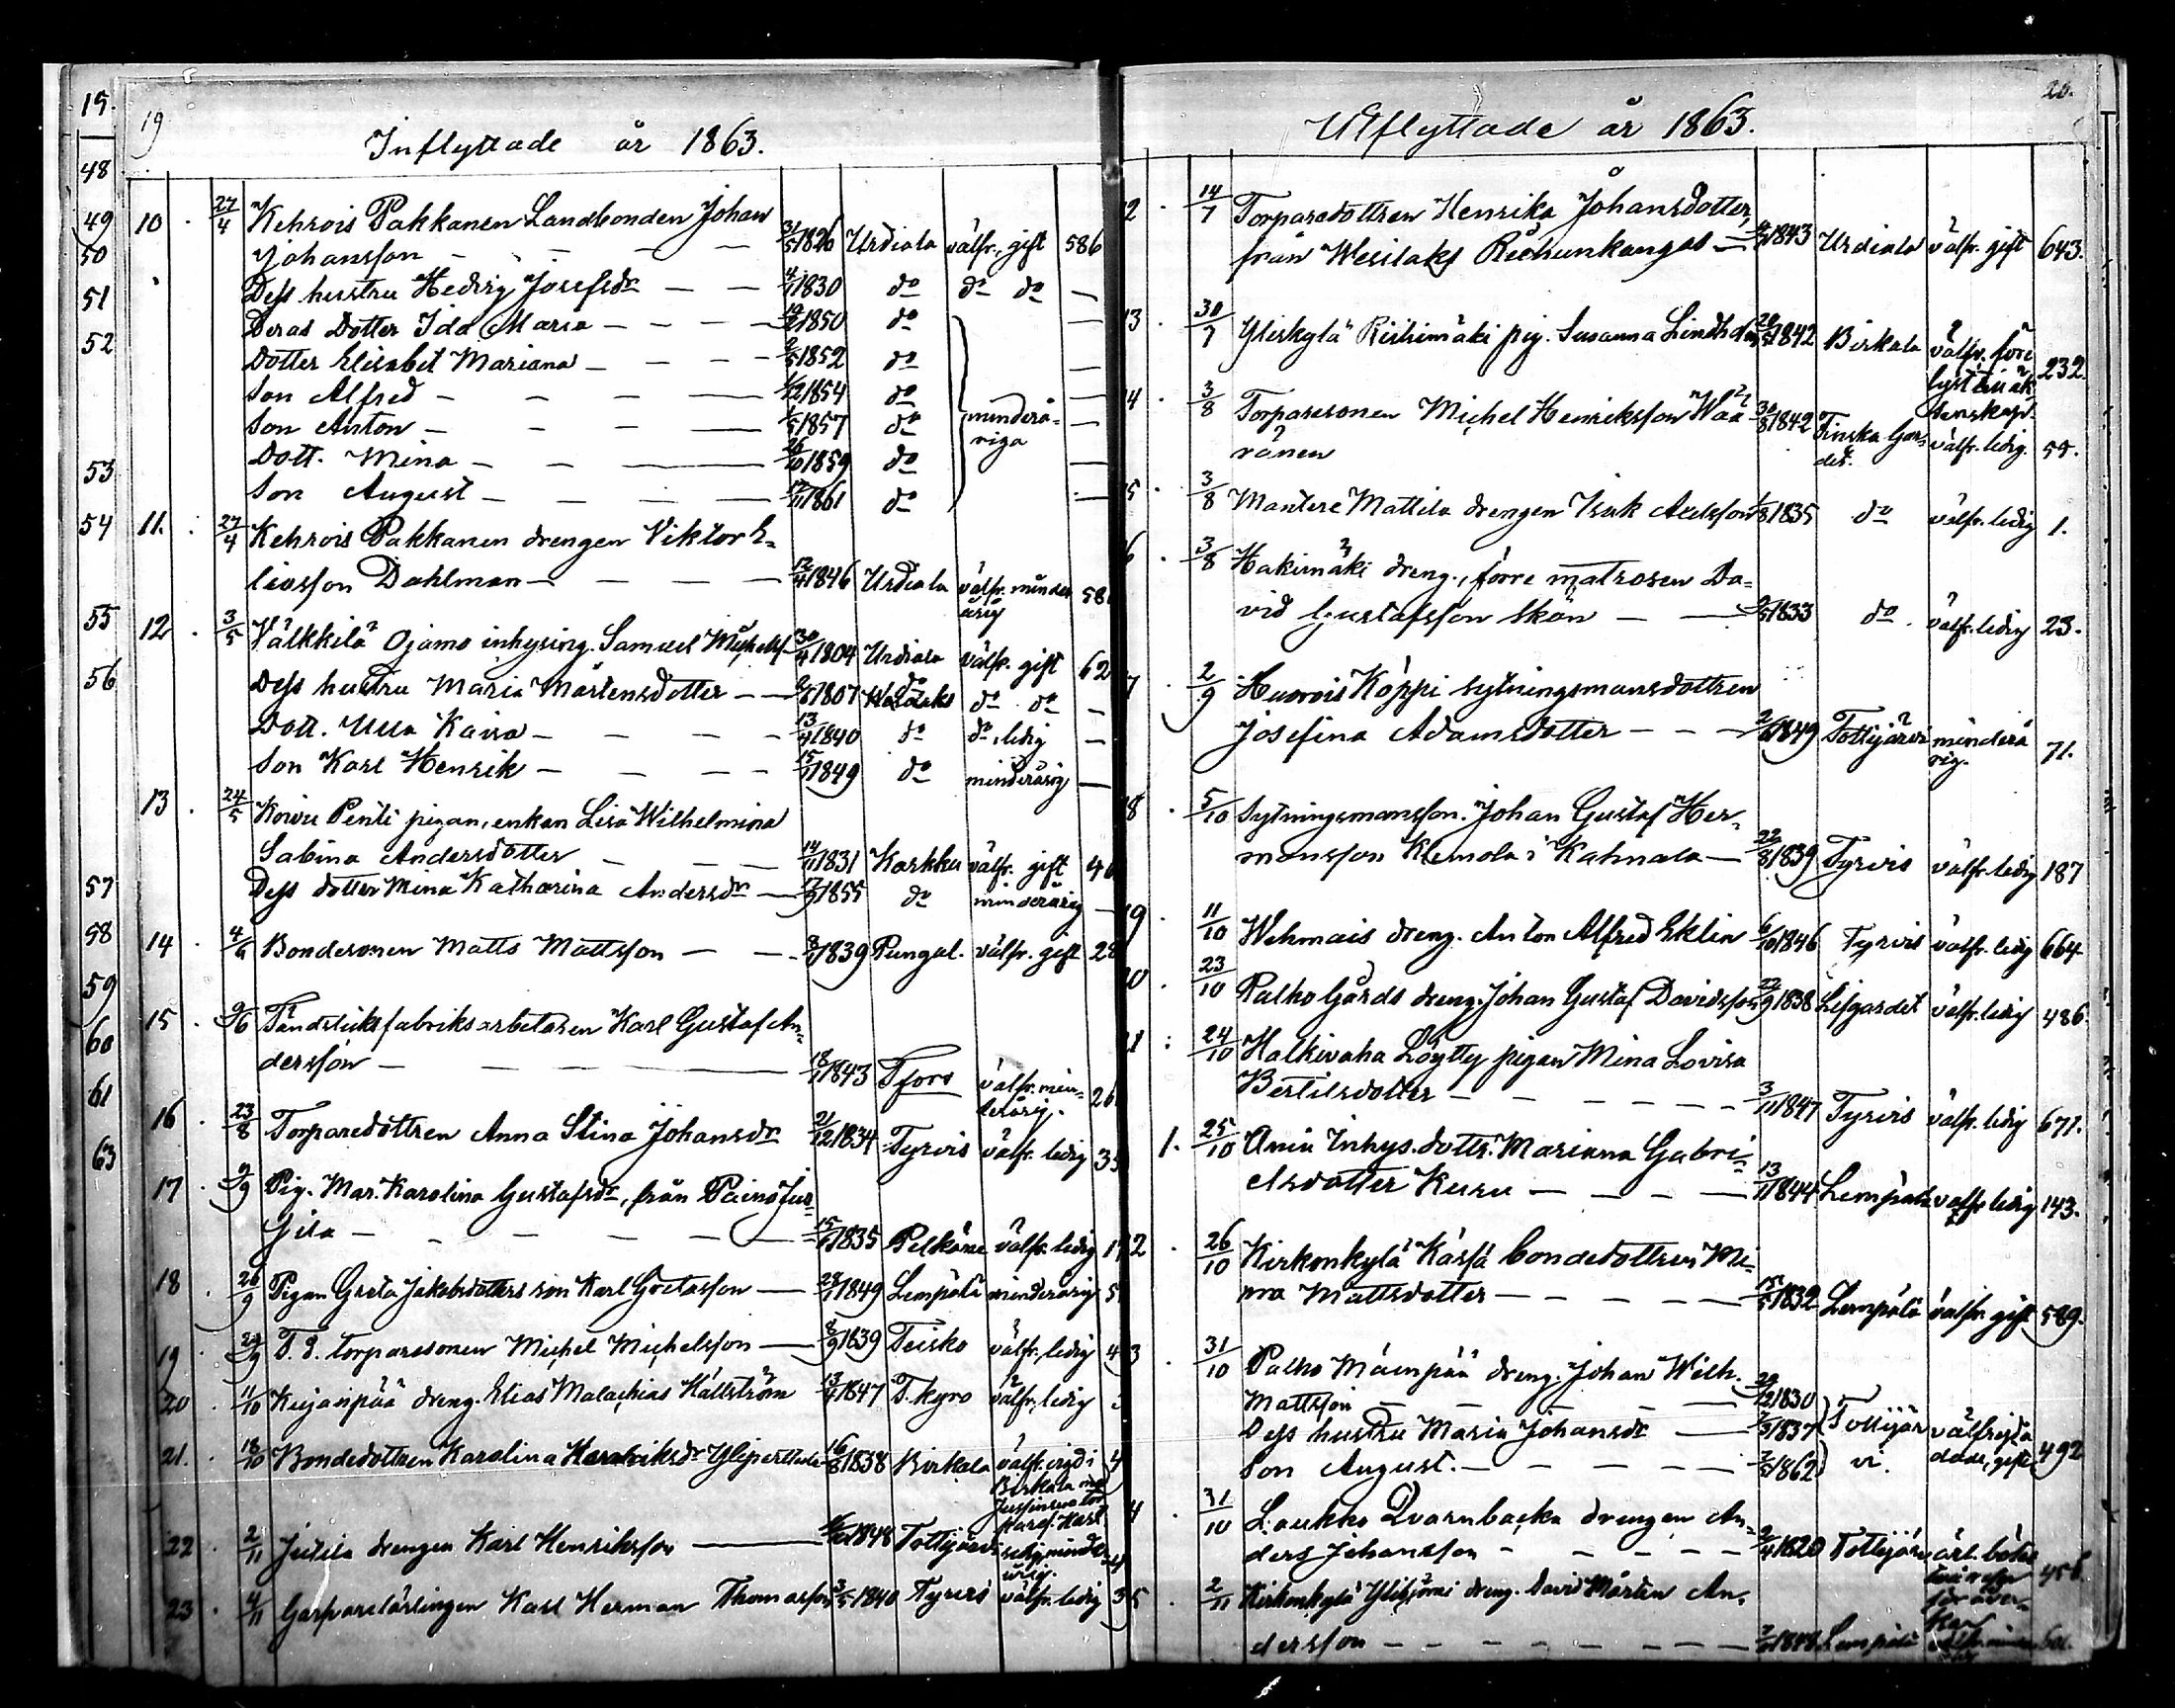 19
Inflyttade år 1863.
10. 27/4 Kehrois Pakkanen Landbonden Johan
Johansson — 31/5 1826 Urdiala välfr. gift 586
Dess hustru Hedvig Josefsdr — 4/1 1830 do do do —
Deras dotter Ida Maria — 1850 do
Dotter Elisabet Mariana — 2/5 1852 do —
Son Alfred — 1/12 1854 do —
Son Anton — 1/5 1857 do minderå- —
Dott. Mina — 26/10 1859 do riga —
Son August — 17/11 1861 do —
11. 27/4 Kehrois Pakkanen drengen Viktor E-
liasson Dahlman — 12/4 1846 Urdiala välfr. minder 58
årig
12. 3/5 Välkkilä Ojamo inhysing. Samuel Michelss 30/4 1804 Urdiala välfr. gift 62
Dess hustru Maria Mårtensdotter — 1807 do do do —
Dott. Ulla Kaisa — 13/4 1840 do do, ledig —
Son Karl Henrik — 15/11 1849 do minderårig —
13. 24/5 Koivu Penti pigan, enkan Lisa Wilhelmina
Sabina Andersdotter — 14/11 1831 Karkku välfr. gift 40
Dess dotter Mina Katharina Andersdr — 17/9 1855 do minderårig —
14. 4/6 Bondesonen Matts Mattsson — 1839 Pungal. välfr. gift 28
15. 9/6 Tändsticksfabriksarbetaren Karl Gustaf An-
dersson — 18/11 1843 Tfors välfr. min- 26
derårig.
16. 23/8 Torparedottren Anna Stina Johansdr 21/12 1834 Tyrvis välfr. ledig 35
17. 9/9 Pig. Mar. Karolina Gustafsdr, från Paino Jus-
sila — 1835 Pelkäne välfr. ledig 1
18. 26/9 Pigan Greta Jakobsdotters son Karl Gustafsson — 28/1 1849 Lempälä minderårig 5
19. 29/9 T. S. torparesonen Michel Michelsson — 8/9 1839 Teisko välfr. ledig 4
20. 11/10 Kujanpää dreng. Elias Malachias Hällström 13/4 1847 T. kyro välfr. ledig
21. 18/10 Bondedottren Karolina Henriksdr Ylipertt 16/8 1838 Birkala välfr. vigd i 4
Birkala
Karl
22. 2/11 Jutila drengen Karl Henriksson — 1848 Tottijärvi ledig, minder- 4
årig.
23. 4/11 Garfvarelärlingen Karl Herman Thomasson 3/5 1840 Tyrvis välfr. ledig 3
20.
Utflyttade år 1863.
2. 14/7 Torparedottren Henrika Johansdotter,
från Wesilaks Riehunkangas — 1843 Urdiala välfr. gift 643.
3. 30/7 Yliskylä Riihimäki pig. Susanna Lindholm 1842 Birkala välfr. före 232.
lyst till äk
tenskap.
4. 3/8 Torparesonen Michel Henriksson Waa- 30/8 1842 Finska Gar- välfr. ledig. 55.
ränen det.
5. 3/8 Mantere Mattila drengen Isak Axelsson 1835 do välfr. ledig 1.
6. 3/8 Hakimäki dreng., förre matrosen Da-
vid Gustafsson Skön — 1833 do välfr. ledig 23.
7. 2/9 Huovois Köppi sytningsmansdottren
Josefina Adamsdotter — 1849 Tottijärvi minderå 71.
rig.
8. 5/10 Sytningsmansson. Johan Gustaf Her-
mansson Klemola i Kahnala — 22/8 1839 Tyrvis välfr. ledig 187
9. 11/10 Wehmais dreng. Anton Alfred Eklin 6/10 1846 Tyrvis välfr. ledig 664.
0. 23/10 Palho Gårds dreng. Johan Gustaf Davidsson 22/9 1838 Lifgardet välfr. ledig 486.
1. 24/10 Halkivaha Löytty pigan Mina Lovisa
Bertilsdotter — 3/11 1847 Tyrvis välfr. ledig 671.
1. 25/10 Ania Inhys. dottr. Mariana Gabri-
elsdotter Kusu — 13/11 1844 Lempälä välfr. ledig 143.
2. 26/10 Kirkonkylä Kärfä bondedottren Mi-
na Mattsdotter — 15/5 1832 Lempälä välfr. gift 589.
3. 31/10 Palho Mäenpää dreng. Johan Wilh.
Mattsson — 29/12 1830
Dess hustru Maria Johansdr — 1837 Tottijär välfrejda
Son August. — 7/5 1862 vi. dade, gifte 492
4. 31/10 Laukko Qvarnbacka drengen An-
ders Johansson — 1820 Tottijärvi
5. 2/11 Kirkonkylä dreng. David Mårten An-
dersson — 1848 Lempälä
15.
48
49
50
51
52
53
54
55
56
57
58
59
60
61
63